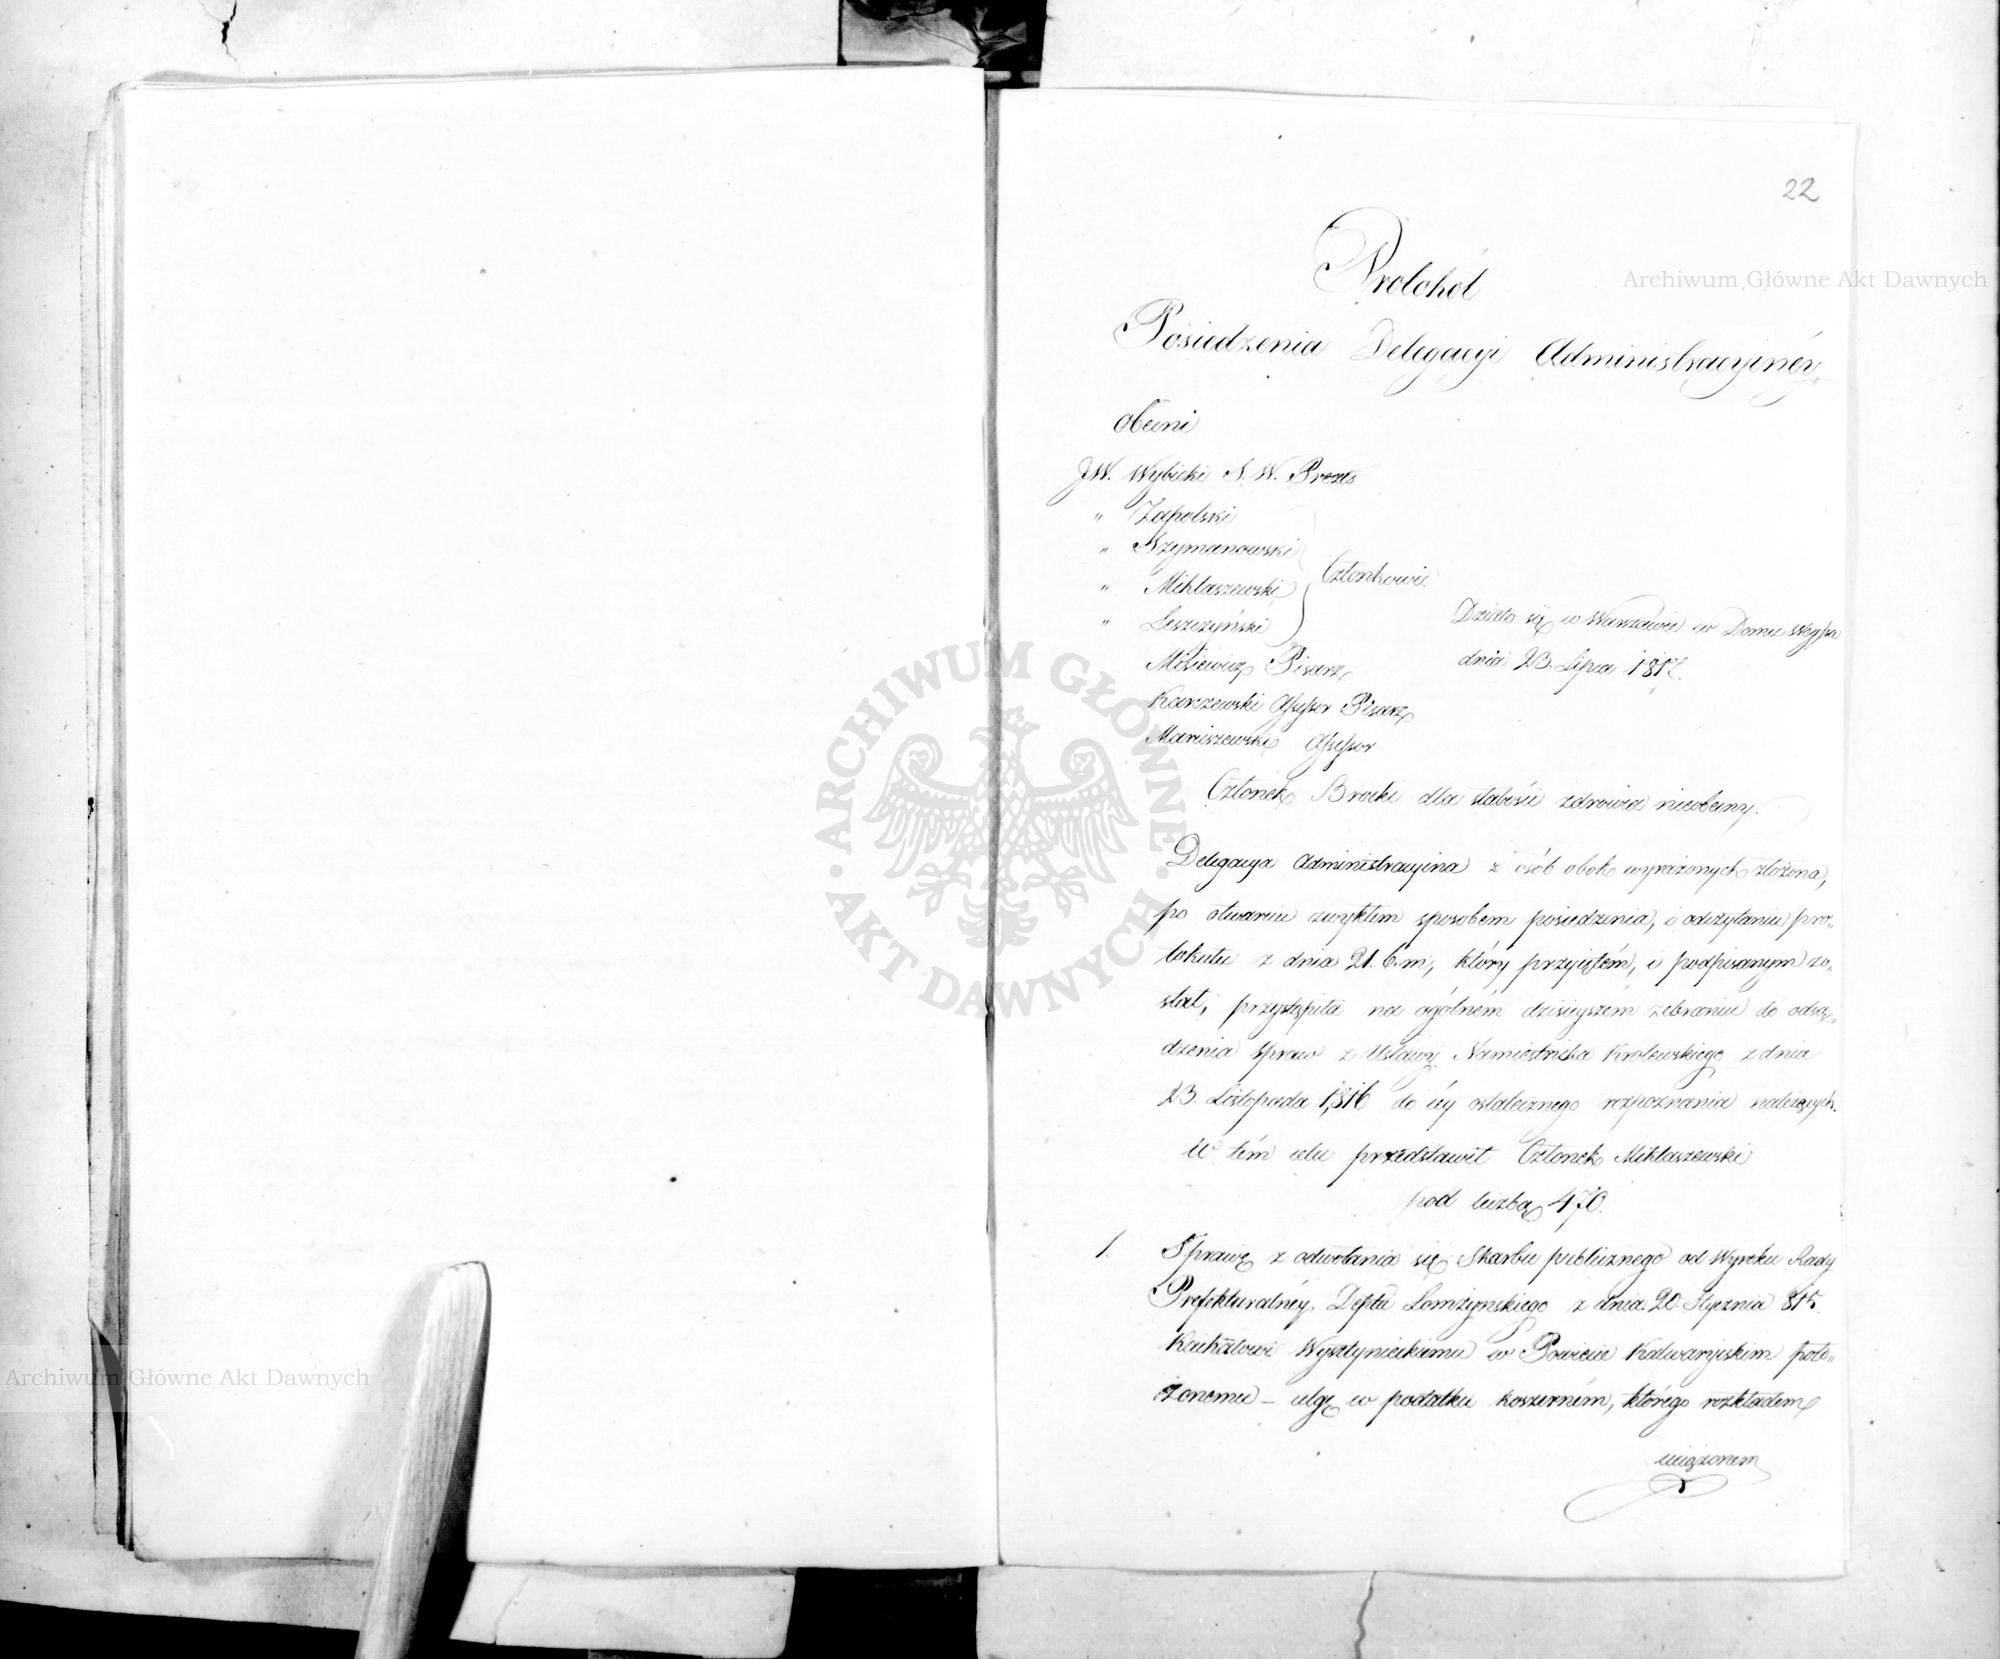 22
Archiwum Główne Akt Dawnych
Protokół
Posiedzenia Delegacyi Administracyinéy
obecni
JW. Wybicki S. W. Prezes
" Zapolski
" Szymanowski
" Mikłaszewski
" Leszczyński
Członkowie.
Działo się w Warszawie w Domu
dnia 23. Lipca 1817.
Misiewicz Pisarz
Karczewski Assessor Pisarz
Maruszewski Assessor
Członek Brocki dla słabości zdrowia nieobecny.
Delegacya Administracyina z osób obok wyrażonych złożona,
po otwarciu zwykłem sposobem posiedzenia, i odczytaniu pro-
tokułu z dnia 21. b. m, który przyiętém, i podpisanym zo-
stał, przystąpiła na ogólném dzisieyszém zebraniu do odsą-
dzenia spraw z Ustawy Namiestnika Krolewskiego z dnia
23. Listopada 1816 do iéy ostatecznego rozpoznania należących.
W tém celu przedstawił Członek Mikłaszewski
pod liczbą 470.
1. Sprawę z odwołania się Skarbu publicznego od Wyroku Rady
Prefekturalnéy Deptu Łomżyńskiego z dnia 20. Stycznia 815.
Kachałowi Wysztynieckiemu w Powiecie Kalwaryiskim poło-
żonemu – ulgę w podatku koszerném, którego rozkładem
uciążonem
ARCHIWUM GŁÓWNE AKT DAWNYCH
Archiwum Główne Akt Dawnych